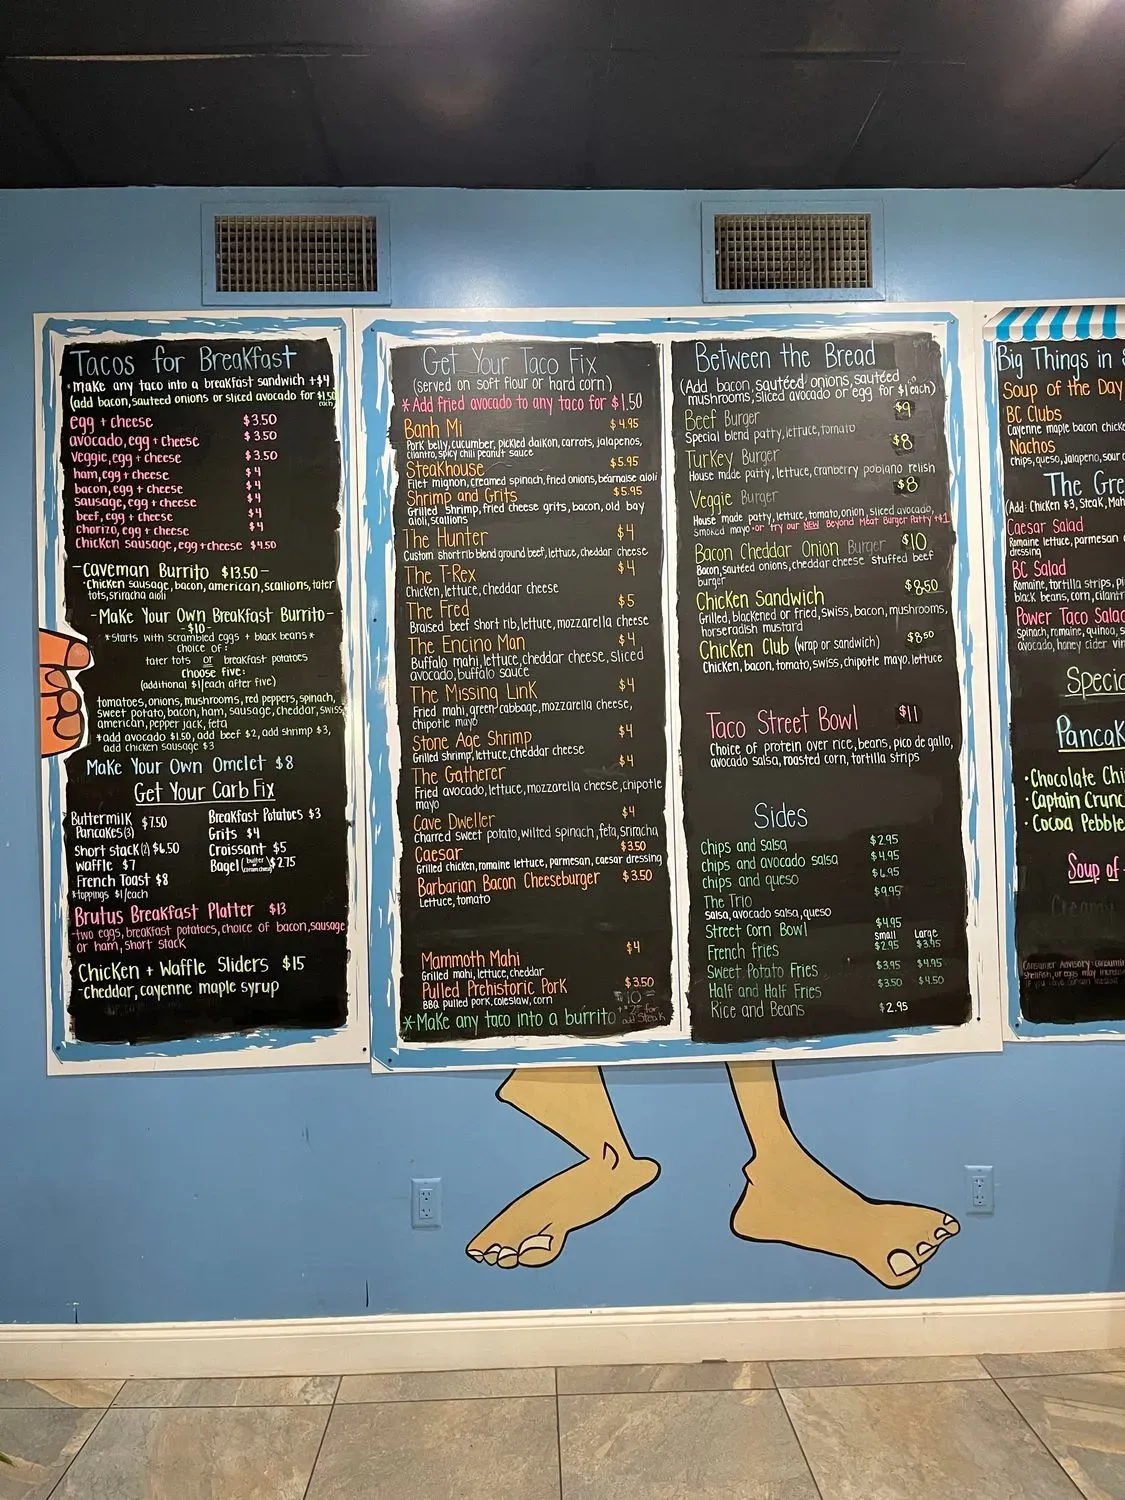 Tacos for Breakfast
*Make any taco into a breakfast sandwich +$4
(add bacon, sautéed onions or sliced avocado for $1.50 each)
egg + cheese $3.50
avocado, egg + cheese $3.50
veggie, egg + cheese $3.50
ham, egg + cheese $4
bacon, egg + cheese $4
sausage, egg + cheese $4
beef, egg + cheese $4
chorizo, egg + cheese $4
Chicken sausage, egg + cheese $4.50
-Caveman Burrito $13.50-
·Chicken sausage, bacon, american, scallions, tater
tots, sriracha aioli
-Make Your Own Breakfast Burrito-
-$10-
*starts with scrambled eggs + black beans*
choice of:
tater tots or breakfast potatoes
choose five:
(additional $1/each after five)
tomatoes, onions, mushrooms, red peppers, spinach,
sweet potato, bacon, ham, sausage, cheddar, swiss,
american, pepper jack, feta
*add avocado $1.50, add beef $2, add shrimp $3,
add chicken sausage $3
Make Your Own Omelet $8
Get Your Carb Fix
Buttermilk
Pancakes(3) $7.50
Short stack(2) $6.50
Waffle $7
French Toast $8
*toppings $1/each
Breakfast Potatoes $3
Grits $4
Croissant $5
Bagel (butter or cream cheese) $2.75
Brutus Breakfast Platter $13
-two eggs, breakfast potatoes, choice of bacon, sausage
or ham, short stack
Chicken + Waffle Sliders $15
-Cheddar, cayenne maple syrup
Get Your Taco Fix
(served on soft flour or hard corn)
*Add fried avocado to any taco for $1.50
Banh Mi $4.95
Pork belly, cucumber, pickled daikon, carrots, jalapenos,
cilantro, spicy chili peanut sauce
Steakhouse $5.95
Filet mignon, creamed spinach, fried onions, béarnaise aioli
Shrimp and Grits $5.95
Grilled shrimp, fried cheese grits, bacon, old bay
aioli, scallions
The Hunter $4
Custom shortrib blend ground beef, lettuce, cheddar cheese
The T-Rex $4
Chicken, lettuce, cheddar cheese
The Fred $5
Braised beef short rib, lettuce, mozzarella cheese
The Encino Man $4
Buffalo mahi, lettuce, cheddar cheese, sliced
avocado, buffalo sauce
The Missing Link $4
Fried mahi, green cabbage, mozzarella cheese,
chipotle mayo
Stone Age Shrimp $4
Grilled shrimp, lettuce, cheddar cheese
The Gatherer $4
Fried avocado, lettuce, mozzarella cheese, chipotle
mayo
Cave Dweller $4
charred sweet potato, wilted spinach, feta, sriracha
Caesar $3.50
Grilled chicken, romaine lettuce, parmesan, caesar dressing
Barbarian Bacon Cheeseburger $3.50
Lettuce, tomato
Mammoth Mahi $4
Grilled mahi, lettuce, cheddar
Pulled Prehistoric Pork $3.50
BBQ pulled pork, coleslaw, corn
*Make any taco into a burrito $10
Between the Bread
(Add bacon, sautéed onions, sautéed
mushrooms, sliced avocado or egg for $1 each)
Beef Burger $9
Special blend patty, lettuce, tomato
Turkey Burger $8
House made patty, lettuce, cranberry poblano relish
Veggie Burger $8
House made patty, lettuce, tomato, onion, sliced avocado,
smoked mayo *or try our NEW Beyond Meat Burger Patty +$1
Bacon Cheddar Onion Burger $10
Bacon, sautéed onions, cheddar cheese stuffed beef
burger
Chicken Sandwich $8.50
Grilled, blackened or fried, swiss, bacon, mushrooms,
horseradish mustard
Chicken Club (wrap or sandwich) $8.50
Chicken, bacon, tomato, swiss, chipotle mayo, lettuce
Taco Street Bowl $11
Choice of protein over rice, beans, pico de gallo,
avocado salsa, roasted corn, tortilla strips
Sides
Chips and salsa $2.95
chips and avocado salsa $4.95
chips and queso $6.95
The Trio $9.95
Salsa, avocado salsa, queso
Street Corn Bowl $4.95
Small Large
French fries $2.95 $3.95
Sweet Potato Fries $3.95 $4.95
Half and Half Fries $3.50 $4.50
Rice and Beans $2.95
Big Things in
Soup of the Day
BC Clubs
Cayenne maple bacon
Nachos
chips, queso, jalapeno, sour
The
(Add: Chicken $3, Steak,
Caesar Salad
Romaine lettuce, parmesan
dressing
BC Salad
Romaine, tortilla strips,
black beans, corn,
Power Taco Salad
spinach, romaine, quinoa,
avocado, honey cider
·Chocolate
·Captain
·Cocoa
Soup of
Creamy
Consumer Advisory: consuming
shellfish, or eggs may increase